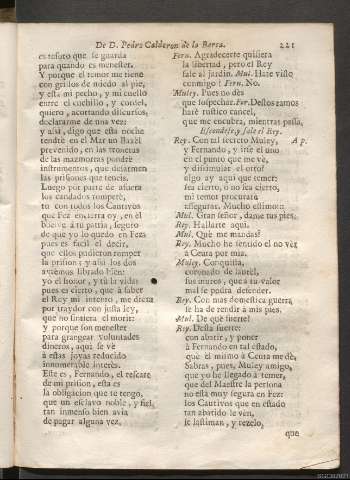 De D. Pedro Calderon de la Barca. 221
es tesoro que se guarda
para quando es menester.
Y porque el temor me tiene
con grillos de miedo al pie,
y està mi pecho, y mi cuello
entre el cuchillo, y cordel,
quiero, acortando discursos,
declararme de una vez:
y assi, digo que esta noche
tendrè en el Mar un Baxèl
prevenido, en las troneras
de las mazmorras pondrè
instrumentos, que desarmen
las prisiones que teneis.
Luego por parte de afuera
los candados romperè,
tu con todos los Cautivos
que Fez encierra oy, en èl
buelve à tu patria, seguro
de que yo lo quedo en Fez;
pues es facil el decir,
que ellos pudieron romper
la prision: y assi los dos
avremos librado bien:
yo el honor, y tù la vida;
pues es cierto, que à saber
el Rey mi intento, me diera
por traydor con justa ley,
que no sintiera el morir:
y porque son menester
para grangear voluntades
dineros, aqui se vè
à estas joyas reducido
innumerable interès.
Este es, Fernando, el rescate
de mi prision, esta es
la obligacion que te tengo,
que un esclavo noble, y fiel,
tan inmenso bien avia
de pagar alguna vez.
Fern. Agradecerte quisiera
la libertad, pero el Rey
sale al jardin. Mul. Hate visto
conmigo? Fern. No.
Muley. Pues no dès
que sospechar. Fer. Destos ramos
harè rustico cancel,
que me encubra, mientras passa.
Escondese, y sale el Rey.
Rey. Con tal secreto Muley, Ap.
y Fernando, y irse el uno
en el punto que me vè,
y dissimular el otro?
algo ay aqui que temer:
sea cierto, ò no sea cierto,
mi temor procurarà
assegurar. Mucho estimo:
Mul. Gran señor, dame tus pies.
Rey. Hallarte aqui.
Mul. Què me mandas?
Rey. Mucho he sentido el no vèr
à Ceuta por mia.
Muley. Conquista,
coronado de laurèl,
sus muros, que à tu valor
mal se podrà defender.
Rey. Con mas domestica guerra
se ha de rendir à mis pies.
Mul. De què suerte?
Rey. Desta suerte:
con abatir, y poner
à Fernando en tal estado,
que èl mismo à Ceuta me dè.
Sabràs, pues, Muley amigo,
que yo he llegado à temer,
que del Maestre la persona
no està muy segura en Fez:
los Cautivos que en estado
tan abatido le vèn,
se lastiman, y rezelo,
que